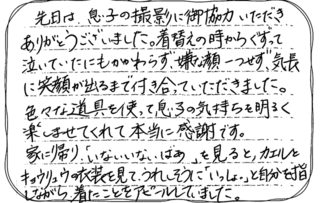 先日は、息子の撮影に御協力いただき
ありがとうございました。着替えの時からぐずって
泣いていたにもかかわらず、嫌な顔一つせず、気長
に笑顔が出るまで付き合っていただきました。
色々な道具を使って息子の気持ちを明るく
楽しませてくれて本当に感謝です。
家に帰り、「いないいないばぁ」を見ると、カエルと
キョウリュウの衣装を見て、うれしそうに"いっしょ〜"と自分を指
しながら、着たことをアピールしていました。